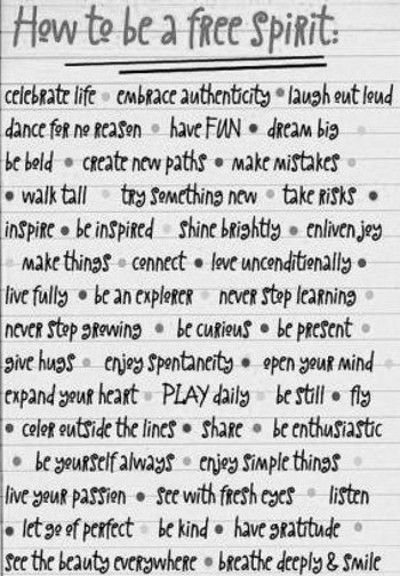 How to be a free spirit:
celebrate life • embrace authenticity • laugh out loud
dance for no reason • have FUN • dream big
be bold • create new paths • make mistakes •
• walk tall • try something new • take risks •
inspire • be inspired • shine brightly • enliven joy
• make things • connect • love unconditionally •
live fully • be an explorer • never stop learning •
never stop growing • be curious • be present •
give hugs • enjoy spontaneity • open your mind •
expand your heart • PLAY daily • be still • fly
• color outside the lines • share • be enthusiastic
• be yourself always • enjoy simple things •
live your passion • see with fresh eyes • listen
• let go of perfect • be kind • have gratitude •
see the beauty everywhere • breathe deeply & smile